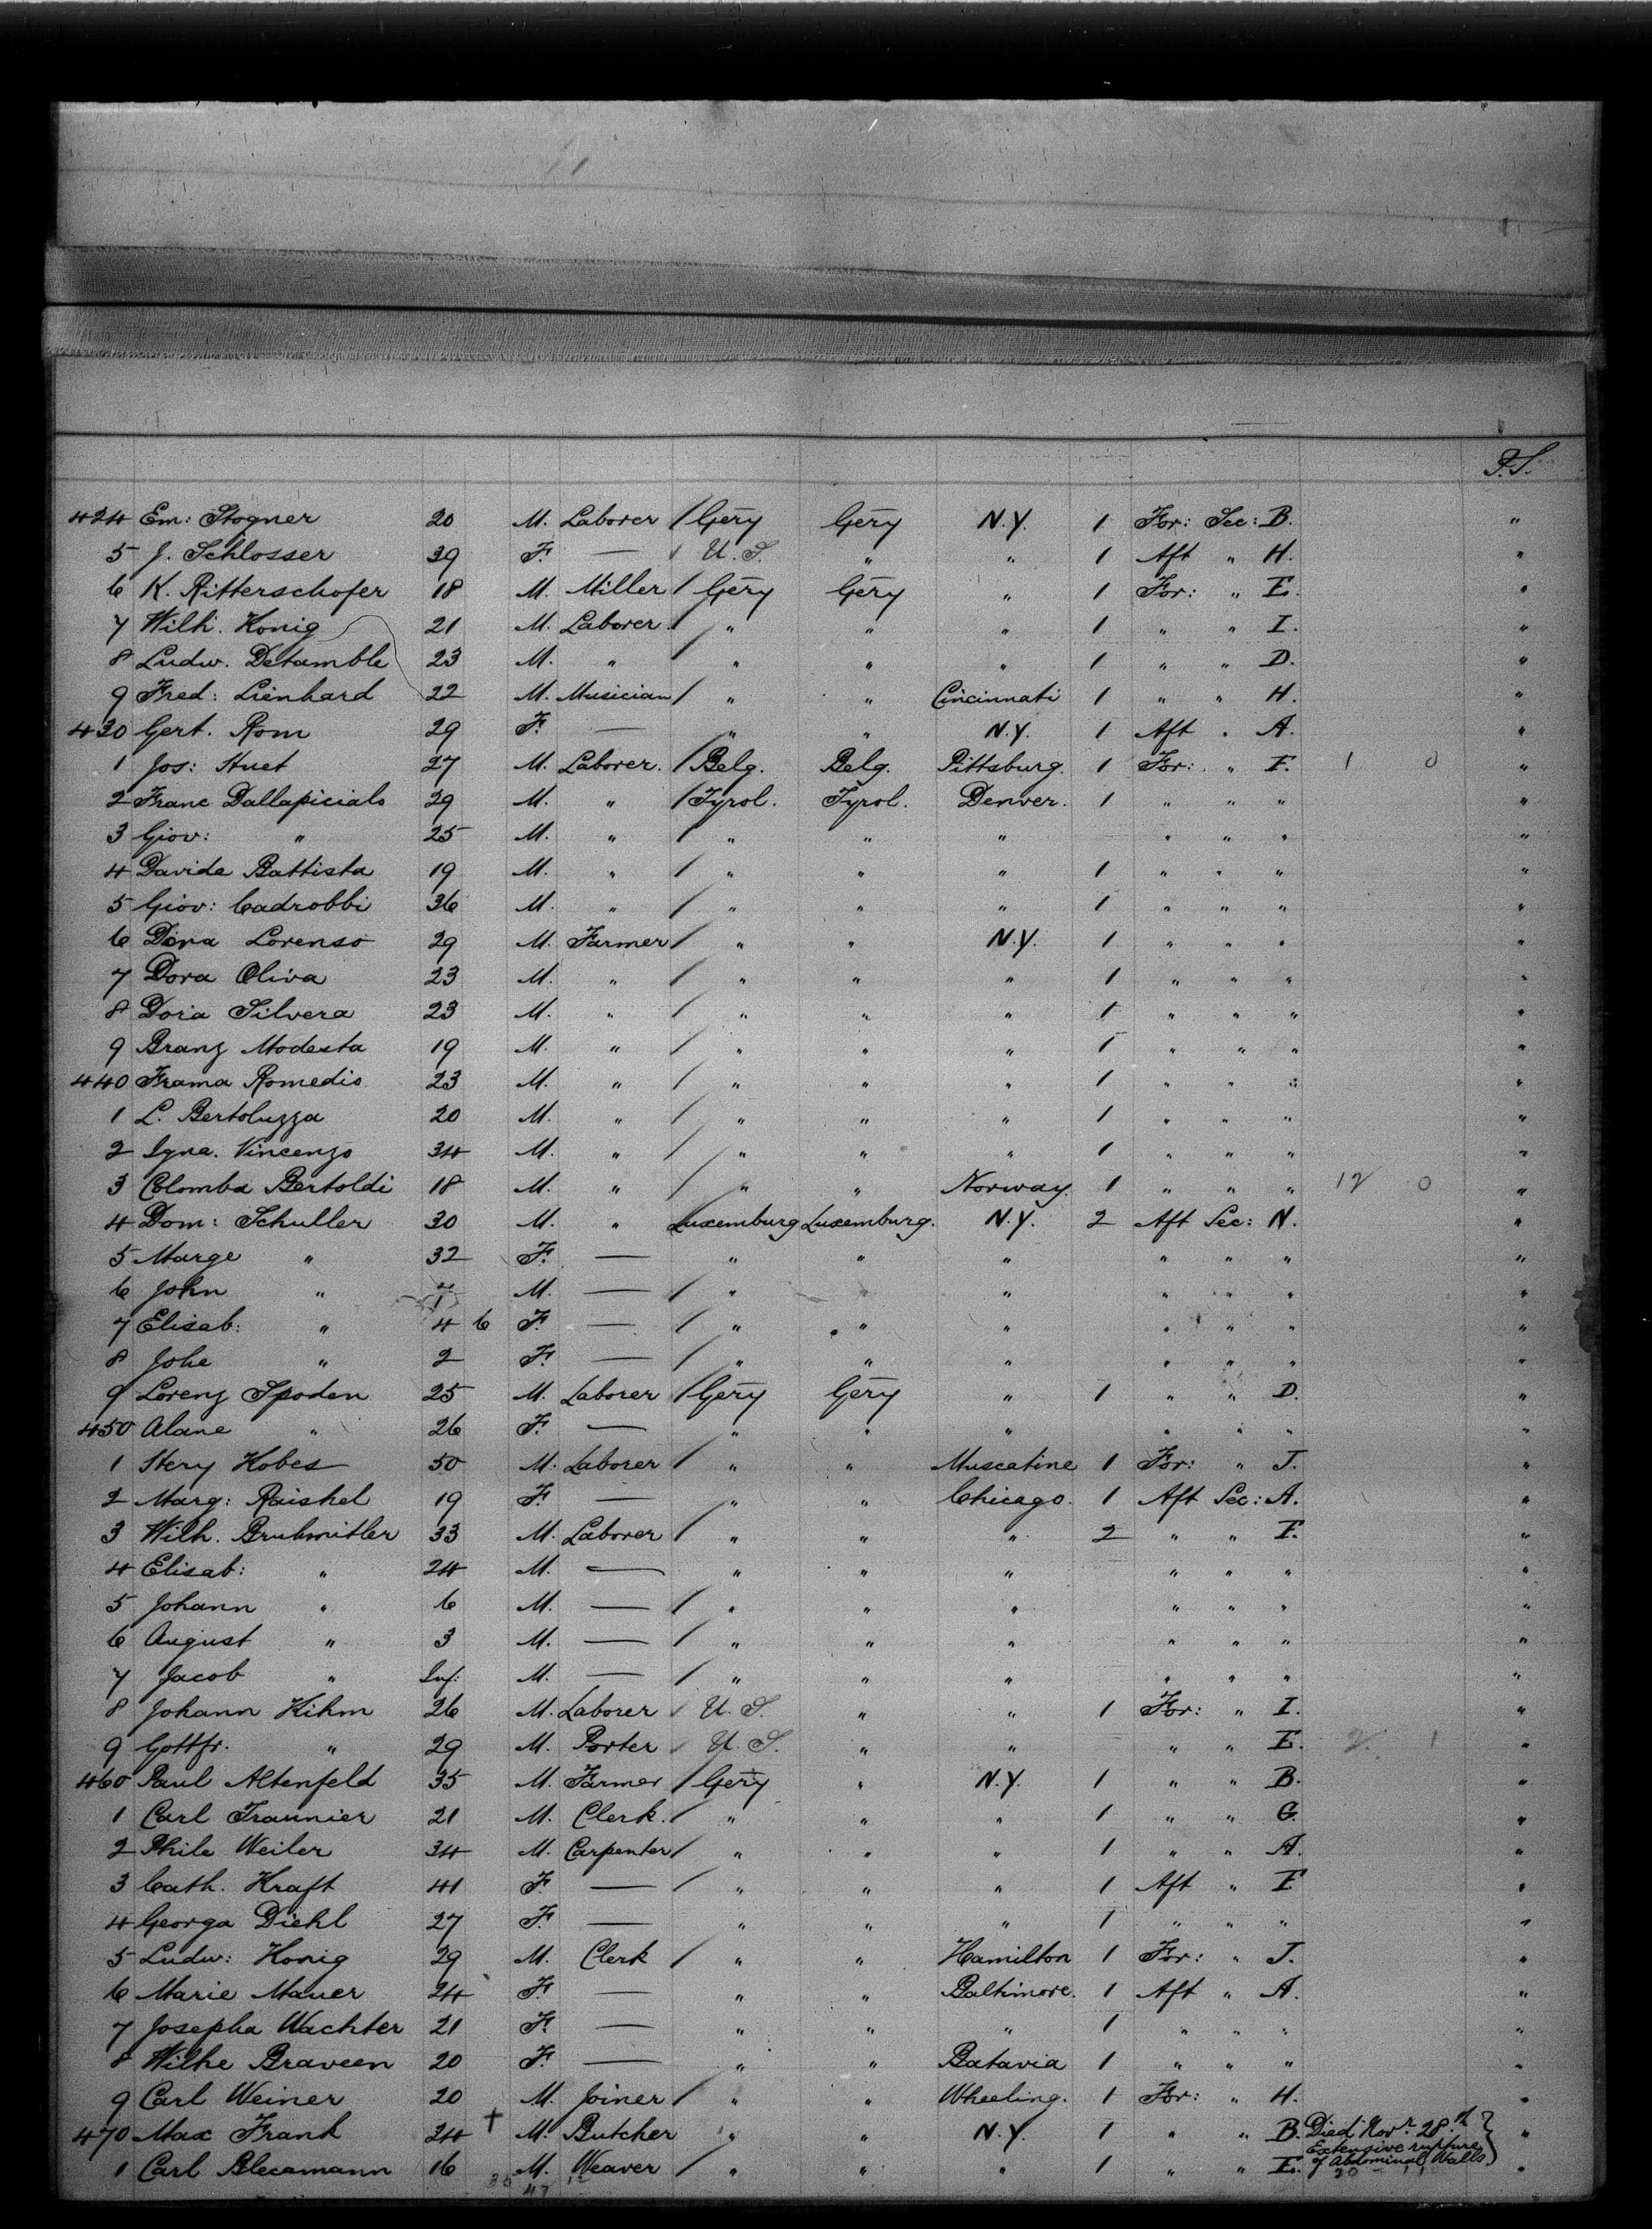 P.S.
424 Em: Stogner 20 M. Laborer / Gery Gery N.Y. 1 For: Sec: B. "
5 J. Schlosser 39 F. — U.S. " " 1 Aft " H. "
6 K. Ritterschofer 18 M. Miller / Gery Gery " 1 For: " E. "
7 Wilh. Konig 21 M. Laborer / " " " 1 " " I. "
8 Ludw. Detamble 23 M. " / " " " 1 " " D. "
9 Fred: Lienhard 22 M. Musician / " " Cincinnati 1 " " H. "
430 Gert. Rom 29 F. — " " N.Y. 1 Aft " A. "
1 Jos: Huet 27 M. Laborer. / Belg. Belg. Pittsburg. 1 For: " F. 1 0 "
2 Franc Dallapicials 29 M. " / Tyrol. Tyrol. Denver. 1 " " " "
3 Giov: " 25 M. " / " " " " " " "
4 Davide Battista 19 M. " / " " " 1 " " " "
5 Giov: Cadrobbi 36 M. " / " " " 1 " " " "
6 Lorenso 29 M. Farmer / " " N.Y. 1 " " " "
7 Dora Oliva 23 M. " / " " " 1 " " " "
8 Doria Silvera 23 M. " / " " " 1 " " " "
9 Branz Modesta 19 M. " / " " " 1 " " " "
440 Frama Romedio 23 M. " / " " " 1 " " " "
1 L. Bertoluzza 20 M. " / " " " 1 " " " "
2 Igna. Vincenzo 34 M. " / " " " 1 " " " "
3 Colomba Bertoldi 18 M. " / " " Norway. 1 " " " 12 0 "
4 Dom: Schuller 30 M. " Luxemburg Luxemburg. N.Y. 2 Aft Sec: N. "
5 Marge " 32 F. — " " " " " " "
6 John " M. — / " " " " " " "
7 Elisab: " 4 6 F. — / " " " " " " "
8 Johe " 2 F. — / " " " " " " "
9 Lorenz Spoden 25 M. Laborer / Gery Gery " 1 " " D. "
450 Alane " 26 F. — " " " " " " "
1 Hery Kobes 50 M. Laborer / " " Muscatine 1 For: " J. "
2 Marg: Raishel 19 F. — " " Chicago. 1 Aft Sec: A. "
3 Wilh. Bruhmitler 33 M. Laborer / " " " 2 " " F. "
4 Elisab: " 24 M. — " " " " " " "
5 Johann " 6 M. — / " " " " " " "
6 August " 3 M. — / " " " " " " "
7 Jacob " Inf: M. — / " " " " " " "
8 Johann Kihm 26 M. Laborer U.S. " " 1 For: " I. "
9 Gottfr. " 29 M. Porter U.S. " " " " E. 2 1 "
460 Paul Altenfeld 35 M. Farmer / Gery " N.Y. 1 " " B. "
1 Carl Traunier 21 M. Clerk. / " " " 1 " " G. "
2 Phile Weiler 34 M. Carpenter / " " " 1 " " A. "
3 Cath. Kraft 41 F. — / " " " 1 Aft " F. "
4 Georga Diehl 27 F. — " " " 1 " " " "
5 Ludw: Konig 29 M. Clerk / " " Hamilton 1 For: " J. "
6 Marie Mauer 24 F. — " " Baltimore. 1 Aft " A. "
7 Josepha Wachter 21 F. — " " " 1 " " " "
8 Wilhe Braveen 20 F. — " " Batavia 1 " " " "
9 Carl Weiner 20 M. Joiner / " " Wheeling. 1 For: " H. "
470 Max Frank 24 † M. Butcher " " N.Y. 1 " " B. Died Novr. 28th "
Extensive rupture
of Abdominal Walls
1 Carl Blecamann 16 M. Weaver / " " " 1 " " E. "
20 11
47 12